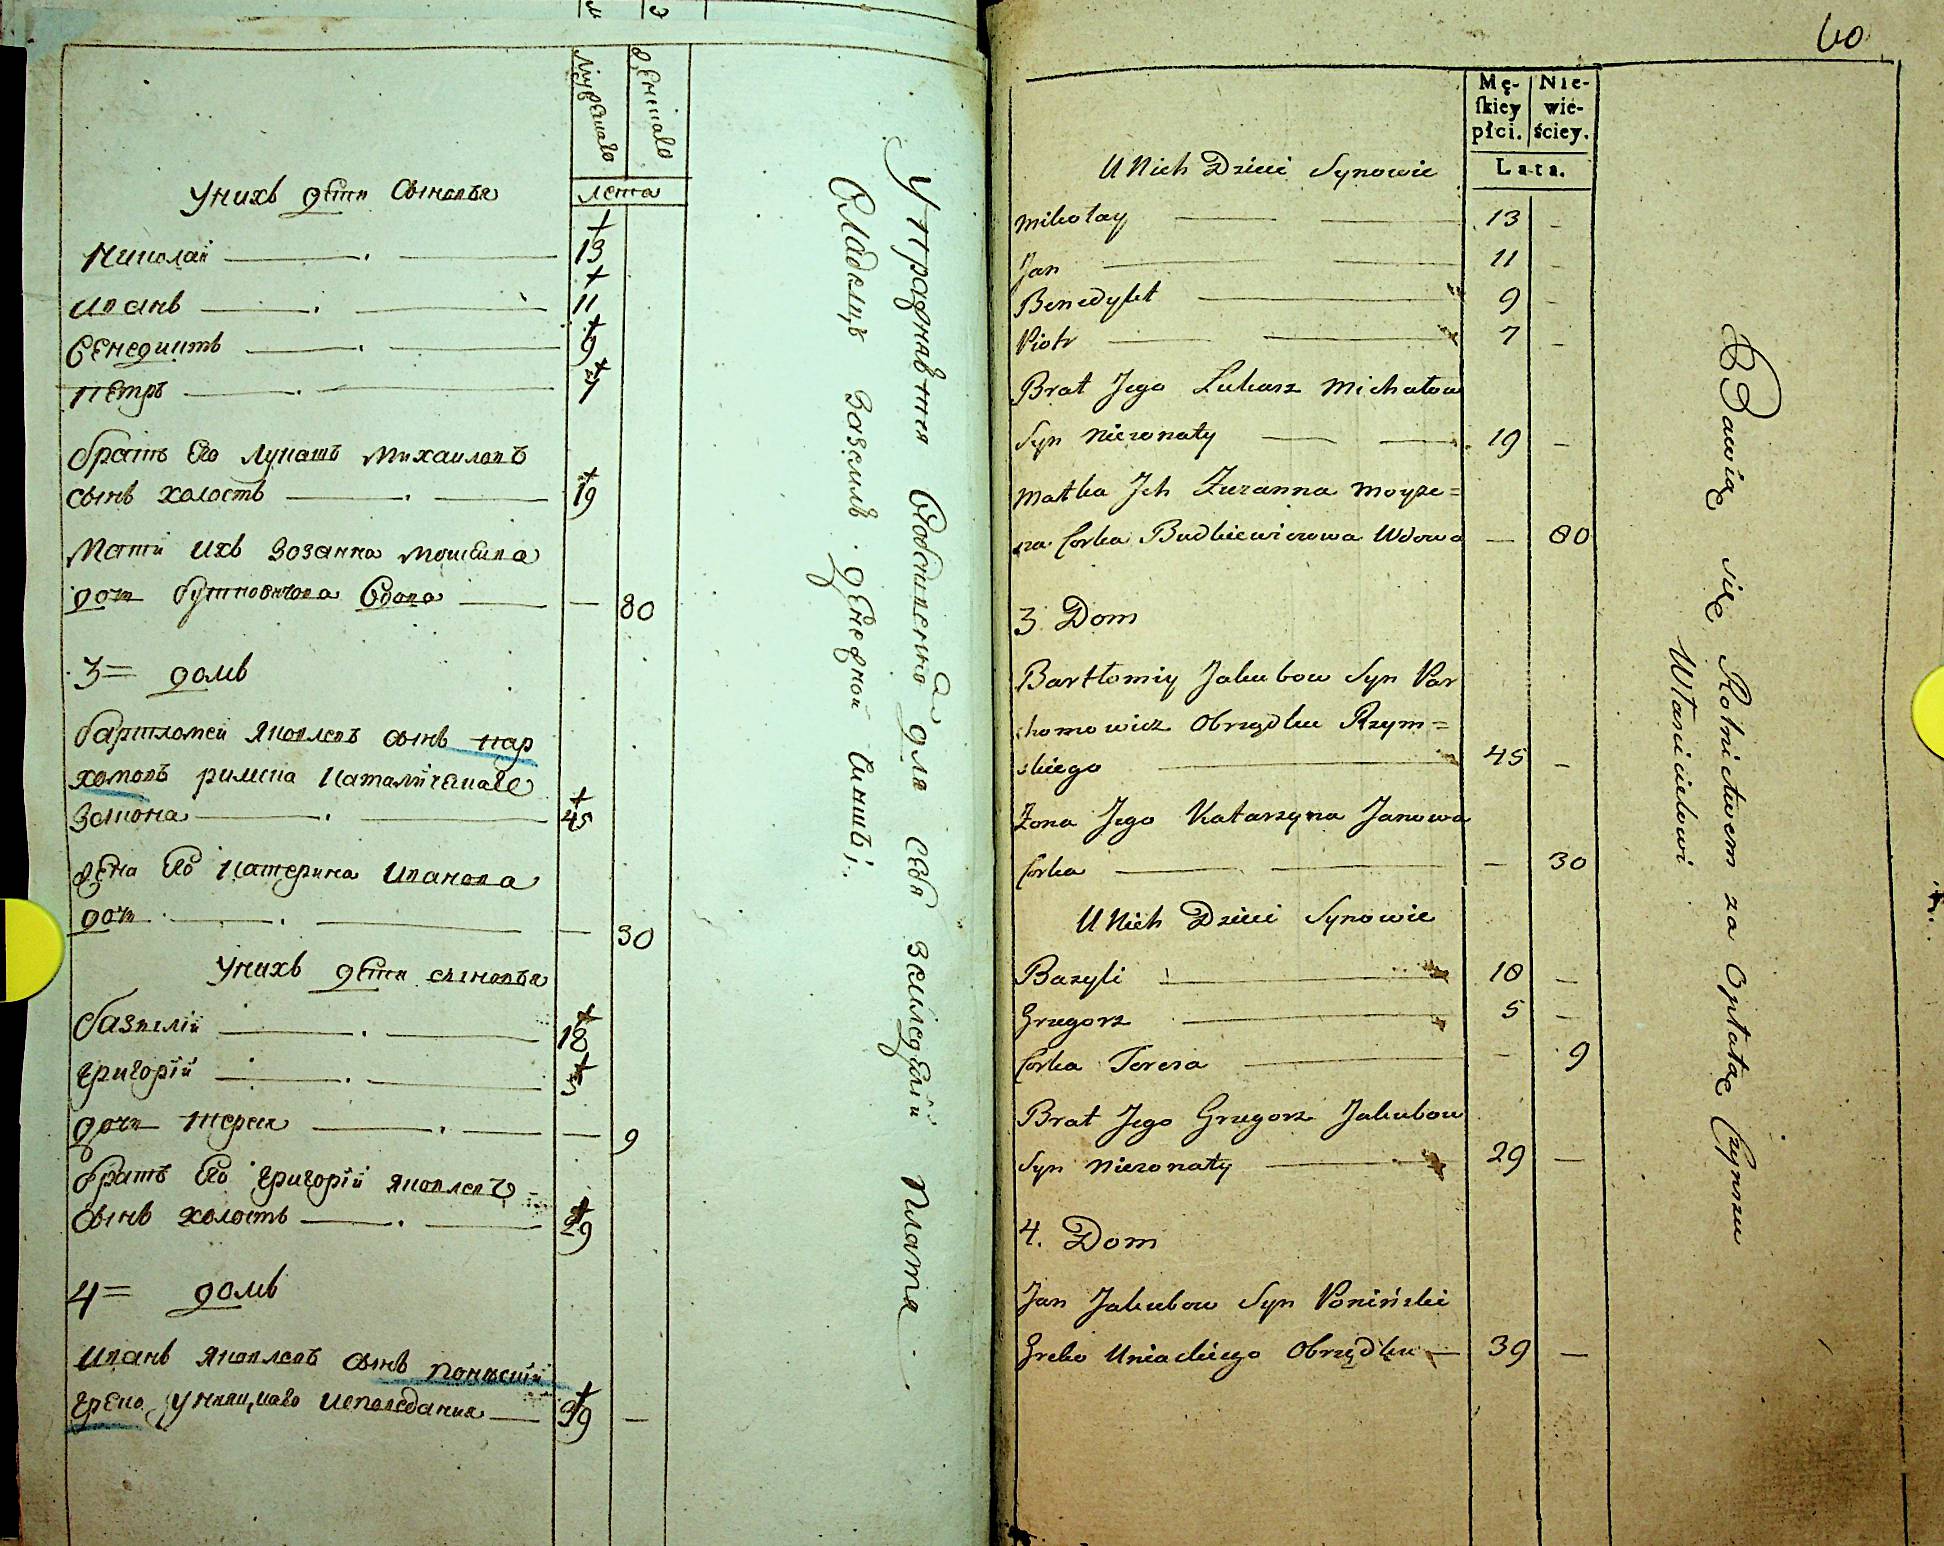 Мужескаго
Женскаго
Лета
Унихъ дети Сыновья
Николай 13
Иванъ 11
Бенедиктъ 9
Петръ 7
братъ Его Лукашъ Михаиловъ
сынъ холостъ 19
Мати ихъ Зозанна Мошеива
доч Вдова — 80
3= домъ
бартломей Яковлевъ сынъ пар
хомовъ римска Каталическаго
Закона 45
жена Его Катерина Иванова
доч — 30
Унихъ дети сыновья
базилий 18
григорїй 5
дочь тереса — 9
братъ Его григорїй яковлевъ
сынъ холостъ 29
4= домъ
иванъ яковлевъ сынъ понинский
греко униацкаго исповедания 39 —
Упражняютця для себя земледелїи Платя
Владельцу Зазємлю денежной Чиншъ;
60
Mę-
ſkiey
płci.
Nie-
wie-
ściey.
Lata.
U Nich Dzieci Synowie
Mikołay 13 –
Jan 11 –
Benedykt 9 –
Piotr 7 –
Brat Jego Łukasz Michałow
Syn Nieżonaty 19 –
Matka Jch Zuzanna Moyze=
na Corka Budkiewiczowa Wdowa — 80
3 Dom
Bartłomiy Jakubow Syn Par
chomowicz Obrządku Rzym=
skiego 45 –
Żona Jego Katarzyna Janowa
Corka — 30
U Nich Dzieci Synowie
Bazyli 18 –
Grzegorz 5 –
Corka Teresa – 9
Brat Jego Grzegorz Jakubow
Syn Nieżonaty 29 —
4. Dom
Jan Jakubow Syn Poniński
Greko Uniackiego Obrządku — 39 —
Bawią się Rolnictwem za Opłatą Czynszu
Własicielowi